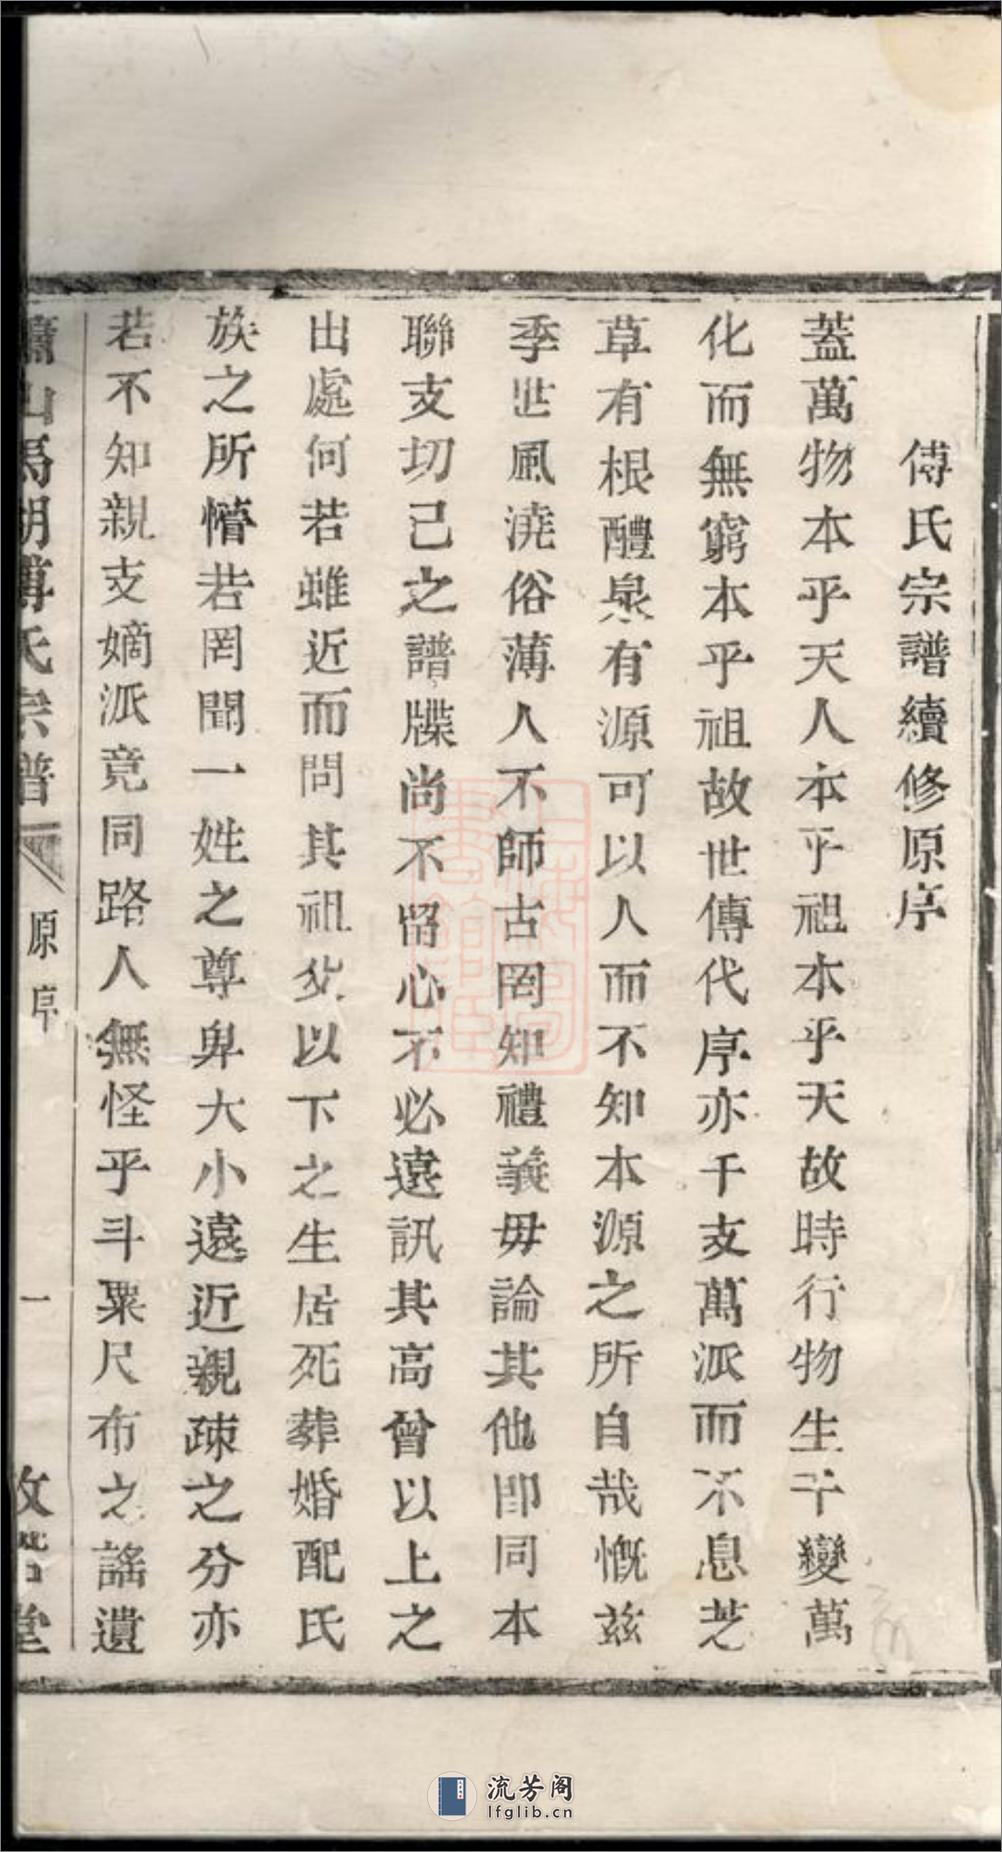 傅氏宗譜續修原序
蓋萬物本乎天人本乎祖本乎天故時行物生千變萬
化而無窮本乎祖故世傳代序亦千支萬派而不息芝
草有根醴泉有源可以人而不知本源之所自哉慨兹
季世風澆俗薄人不師古罔知禮義毋論其他即同本
聯支切己之譜牒尚不留心不必遠訊其高曾以上之
出處何若雖近而問其祖父以下之生居死葬婚配氏
族之所懵若罔聞一姓之尊卑大小遠近親疎之分亦
若不知親支嫡派竟同路人無怪乎斗粟尺布之謠遺
蕭山馬湖傅氏宗譜 原序 一 堂
上海圖書館藏
流芳阁
lfglib.cn